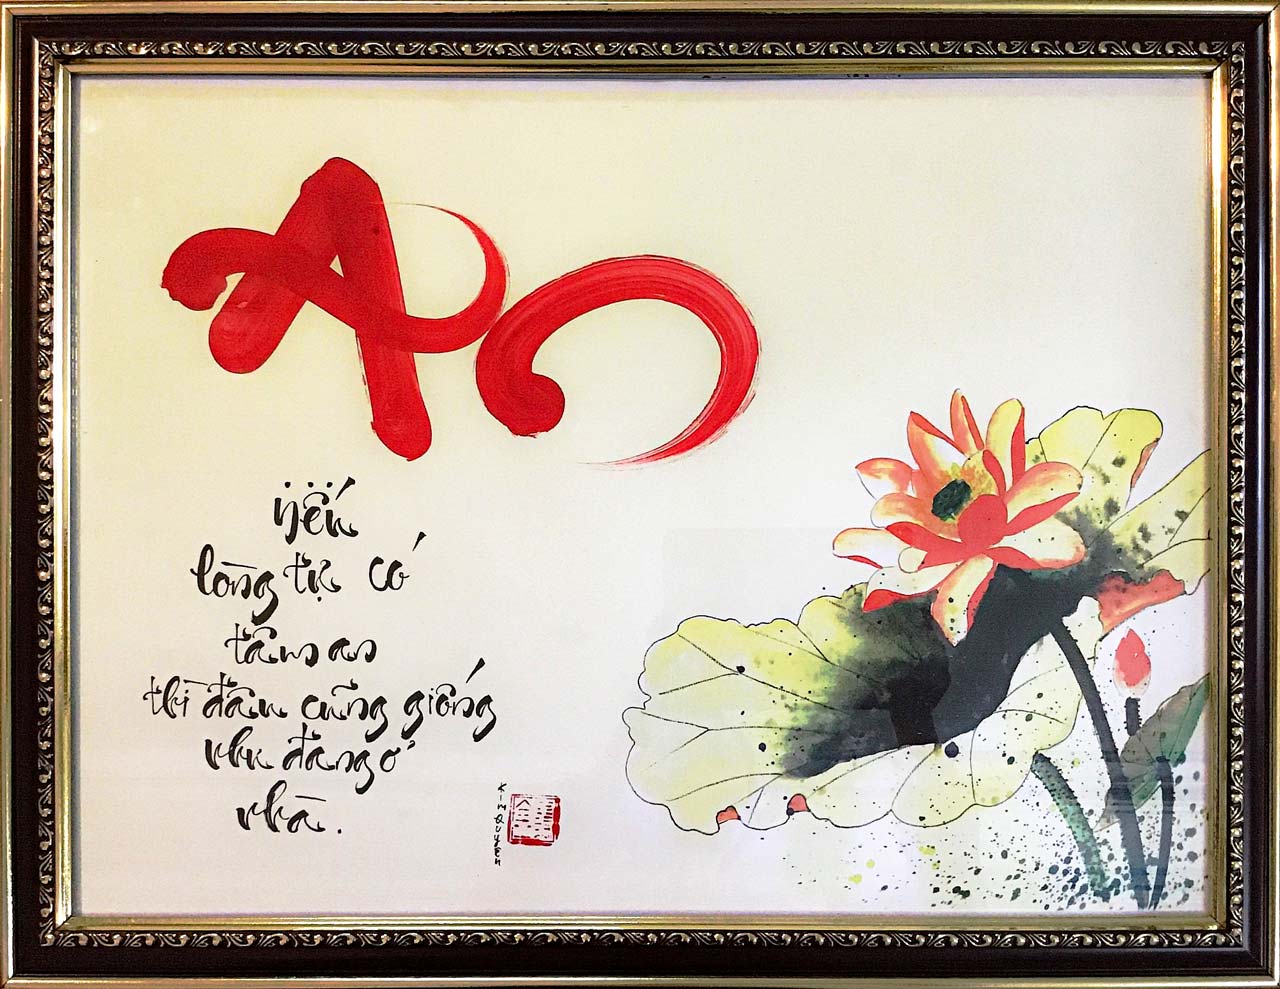 An
...Nếu
lòng tự có
tâm an
thì đâu cũng giống
như đang ở
nhà.
KIM QUYÊN